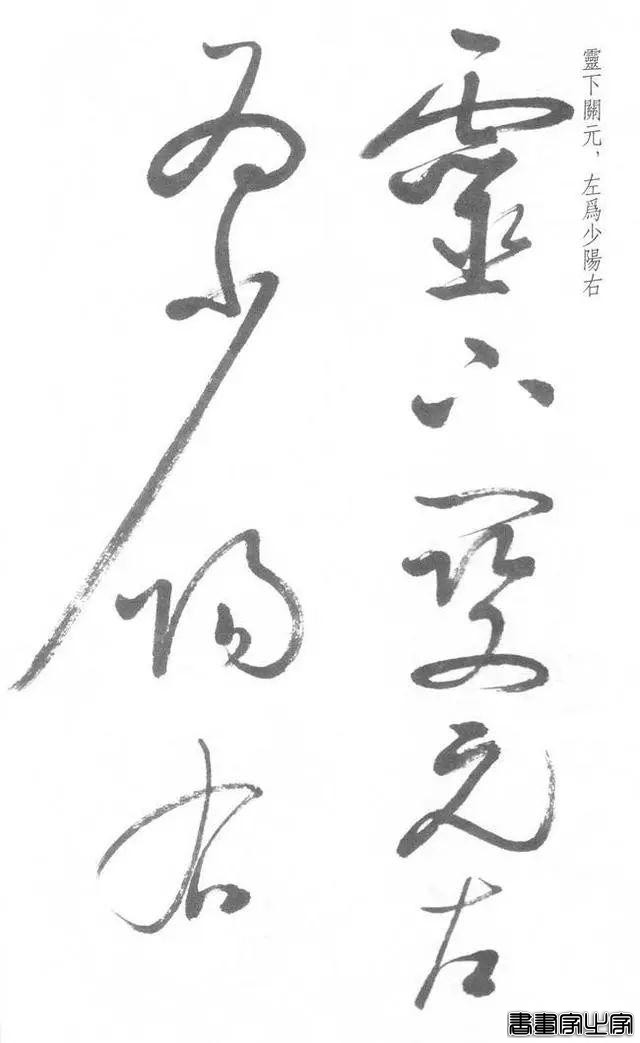 靈下關元，左爲少陽右
靈下關元左
爲少陽右
書畫家之家